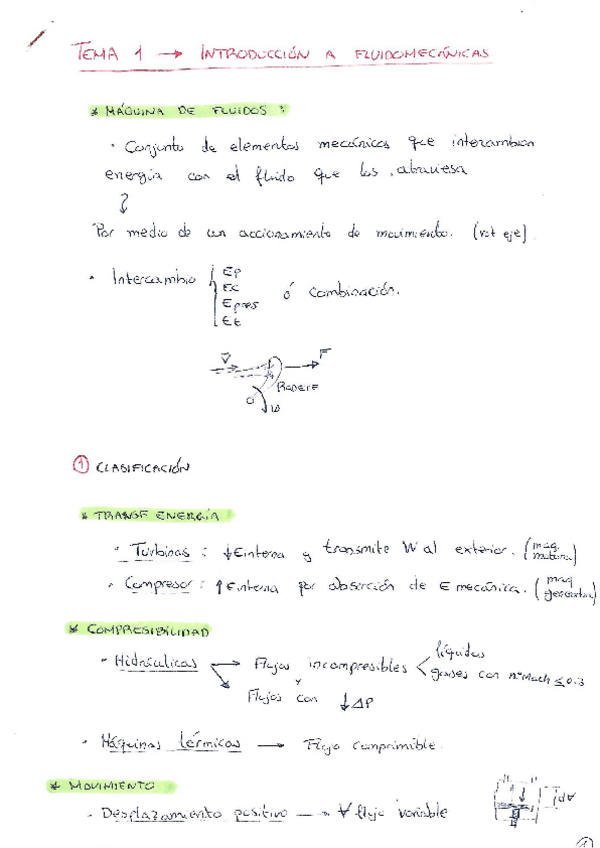 TEMA 1 → INTRODUCCIÓN A FLUIDOMECÁNICAS
* MÁQUINA DE FLUIDOS :
· Conjunto de elementos mecánicos que intercambian
energía con el fluido que los atraviesa
Por medio de un accionamiento de movimiento. (rot eje)
· Intercambio { Ep
Ec
Epres
Et
ó combinación.
V
F
RODETE
ω
① CLASIFICACIÓN
* TRANSF ENERGÍA
· Turbinas : ↓Einterna y transmite W al exterior. (maq. motora)
· Compresor : ↑Einterna por absorción de E mecánica. (maq generadora)
* COMPRESIBILIDAD
· Hidráulicas → Flujos incompresibles < líquidos
gases con nºMach ≤ 0.3
y
Flujos con ↓ΔP
· Máquinas térmicas → Flujo comprimible.
* MOVIMIENTO
· Desplazamiento positivo → ∀ flujo variable
d∀
①